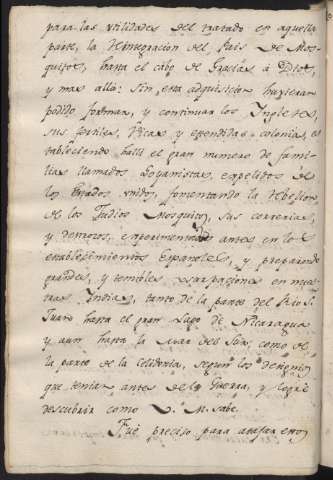 para las utilidades del tratado en aquella
parte, la Reintegracion del Pais de Mos-
quitos, hasta el cabo de Gracias á Dios,
y mas allá: sin esta adquisicion huvieran
podido formar, y continuar los Ingleses,
sus fertiles, Ricas y espendidas colonias, es
tableciendo halli el gran numero de fami-
lias llamados Loyamistas, expelidos de
los Estados unidos, fomentando la Rebelion
de los Indios Mosquitos, sus correrias,
y demoros, experimentado antes en los
establecimientos Españoles, y preparando
grandes, y temibles usurpaciones en nues
tras Indias, tanto de la parte del Rio S.
Juan hasta el gran Lago de Nicaragua
y aun hasta la mar del Sur, como de
la parte de la Celidonia, segun los designios
que tenian antes de la Guerra, y logré
descubrir como V. M. sabe.
Fué preciso para atajar estos